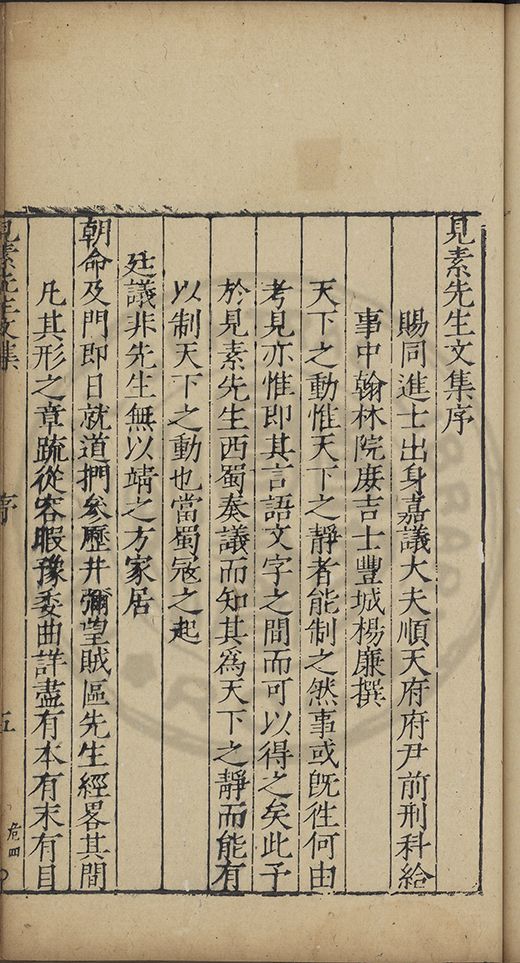 見素先生文集序
賜同進士出身嘉議大夫順天府府尹前刑科給
事中翰林院庶吉士豐城楊廉撰
天下之動惟天下之靜者能制之然事或旣徃何由
考見亦惟即其言語文字之間而可以得之矣此予
於見素先生西蜀奏議而知其爲天下之靜而能有
以制天下之動也當蜀冦之起
廷議非先生無以靖之方家居
朝命及門即日就道捫參歷井彌望賊區先生經畧其間
凡其形之章疏從容暇豫委曲詳盡有本有末有目
見素先生文集
序
五